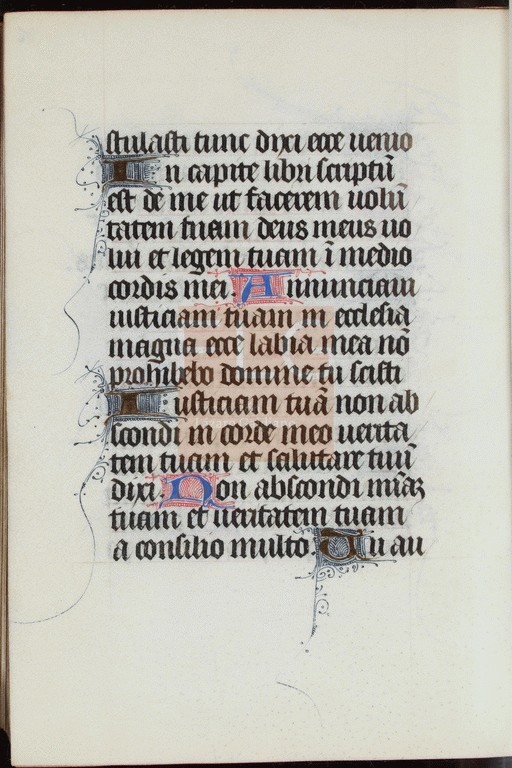 stulasti tunc dixi ecce uenio
In capite libri scriptū
est de me ut facerem uolū
tatem tuam deus meus uo
lui et legem tuam ī medio
cordis mei. Annunciaui
iusticiam tuam in ecclesia
magna ecce labia mea nō
prohibebo domine tu scisti
Iusticiam tuā non ab
scondi in corde meo uerita
tem tuam et salutare tuū
dixi. Non abscondi mīaꝫ
tuam et ueritatem tuam
a consilio multo. Tu au